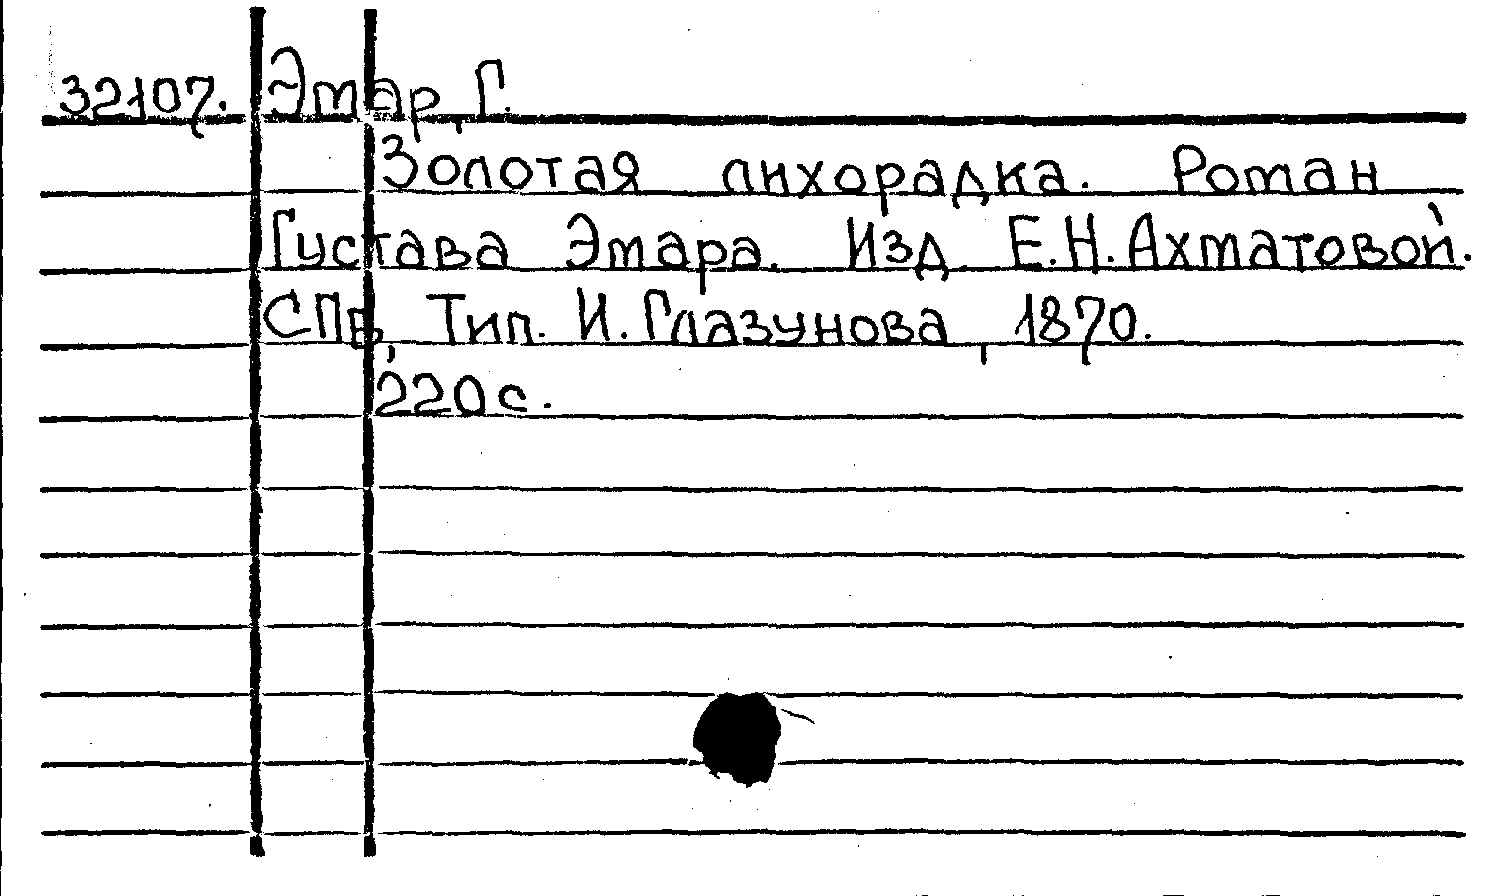 32107. Эмар, Г.
Золотая лихорадка. Роман
Густава Эмара. Изд. Е.Н. Ахматовой.
СПб, Тип. И. Глазунова, 1870.
220 с.